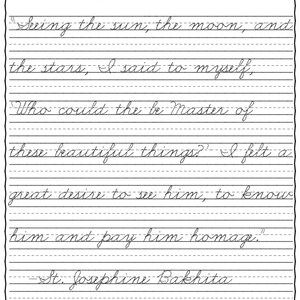 "Seeing the sun, the moon, and
the stars, I said to myself,
'Who could the be Master of
these beautiful things?' I felt a
great desire to see him, to know
him and pay him homage."
-St. Josephine Bakhita